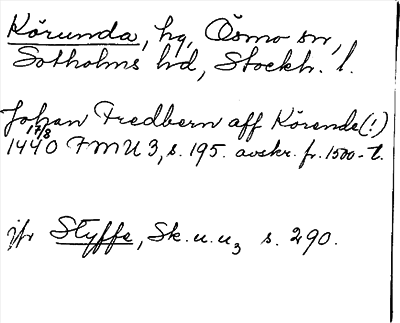 Körunda, hg, Ösmo sn,
Sotholms hd, Stockh. l.
Johan Fredbern aff Körende(!)
17/8
1440 FMU 3, s. 195. avskr. fr. 1500-t.
jfr Styffe, Sk. u. u3 s. 290.